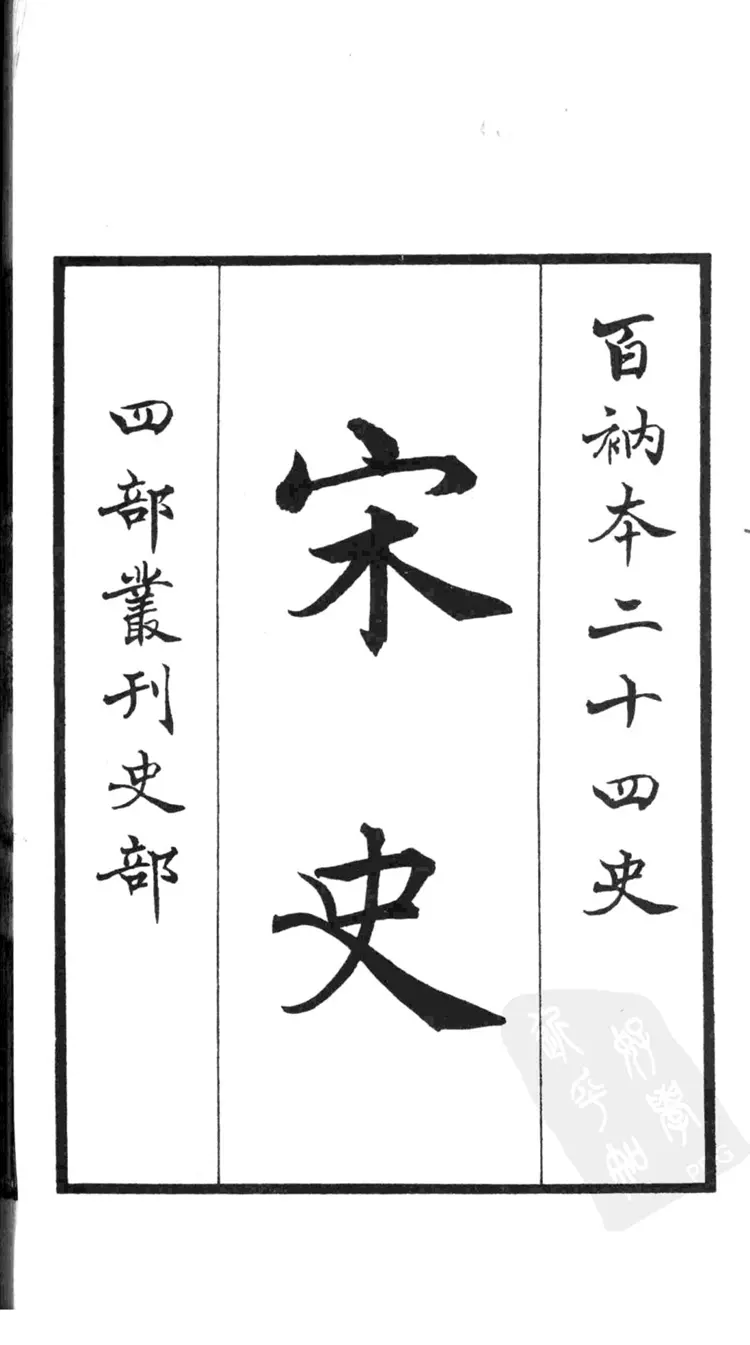 百衲本二十四史
宋史
四部叢刊史部